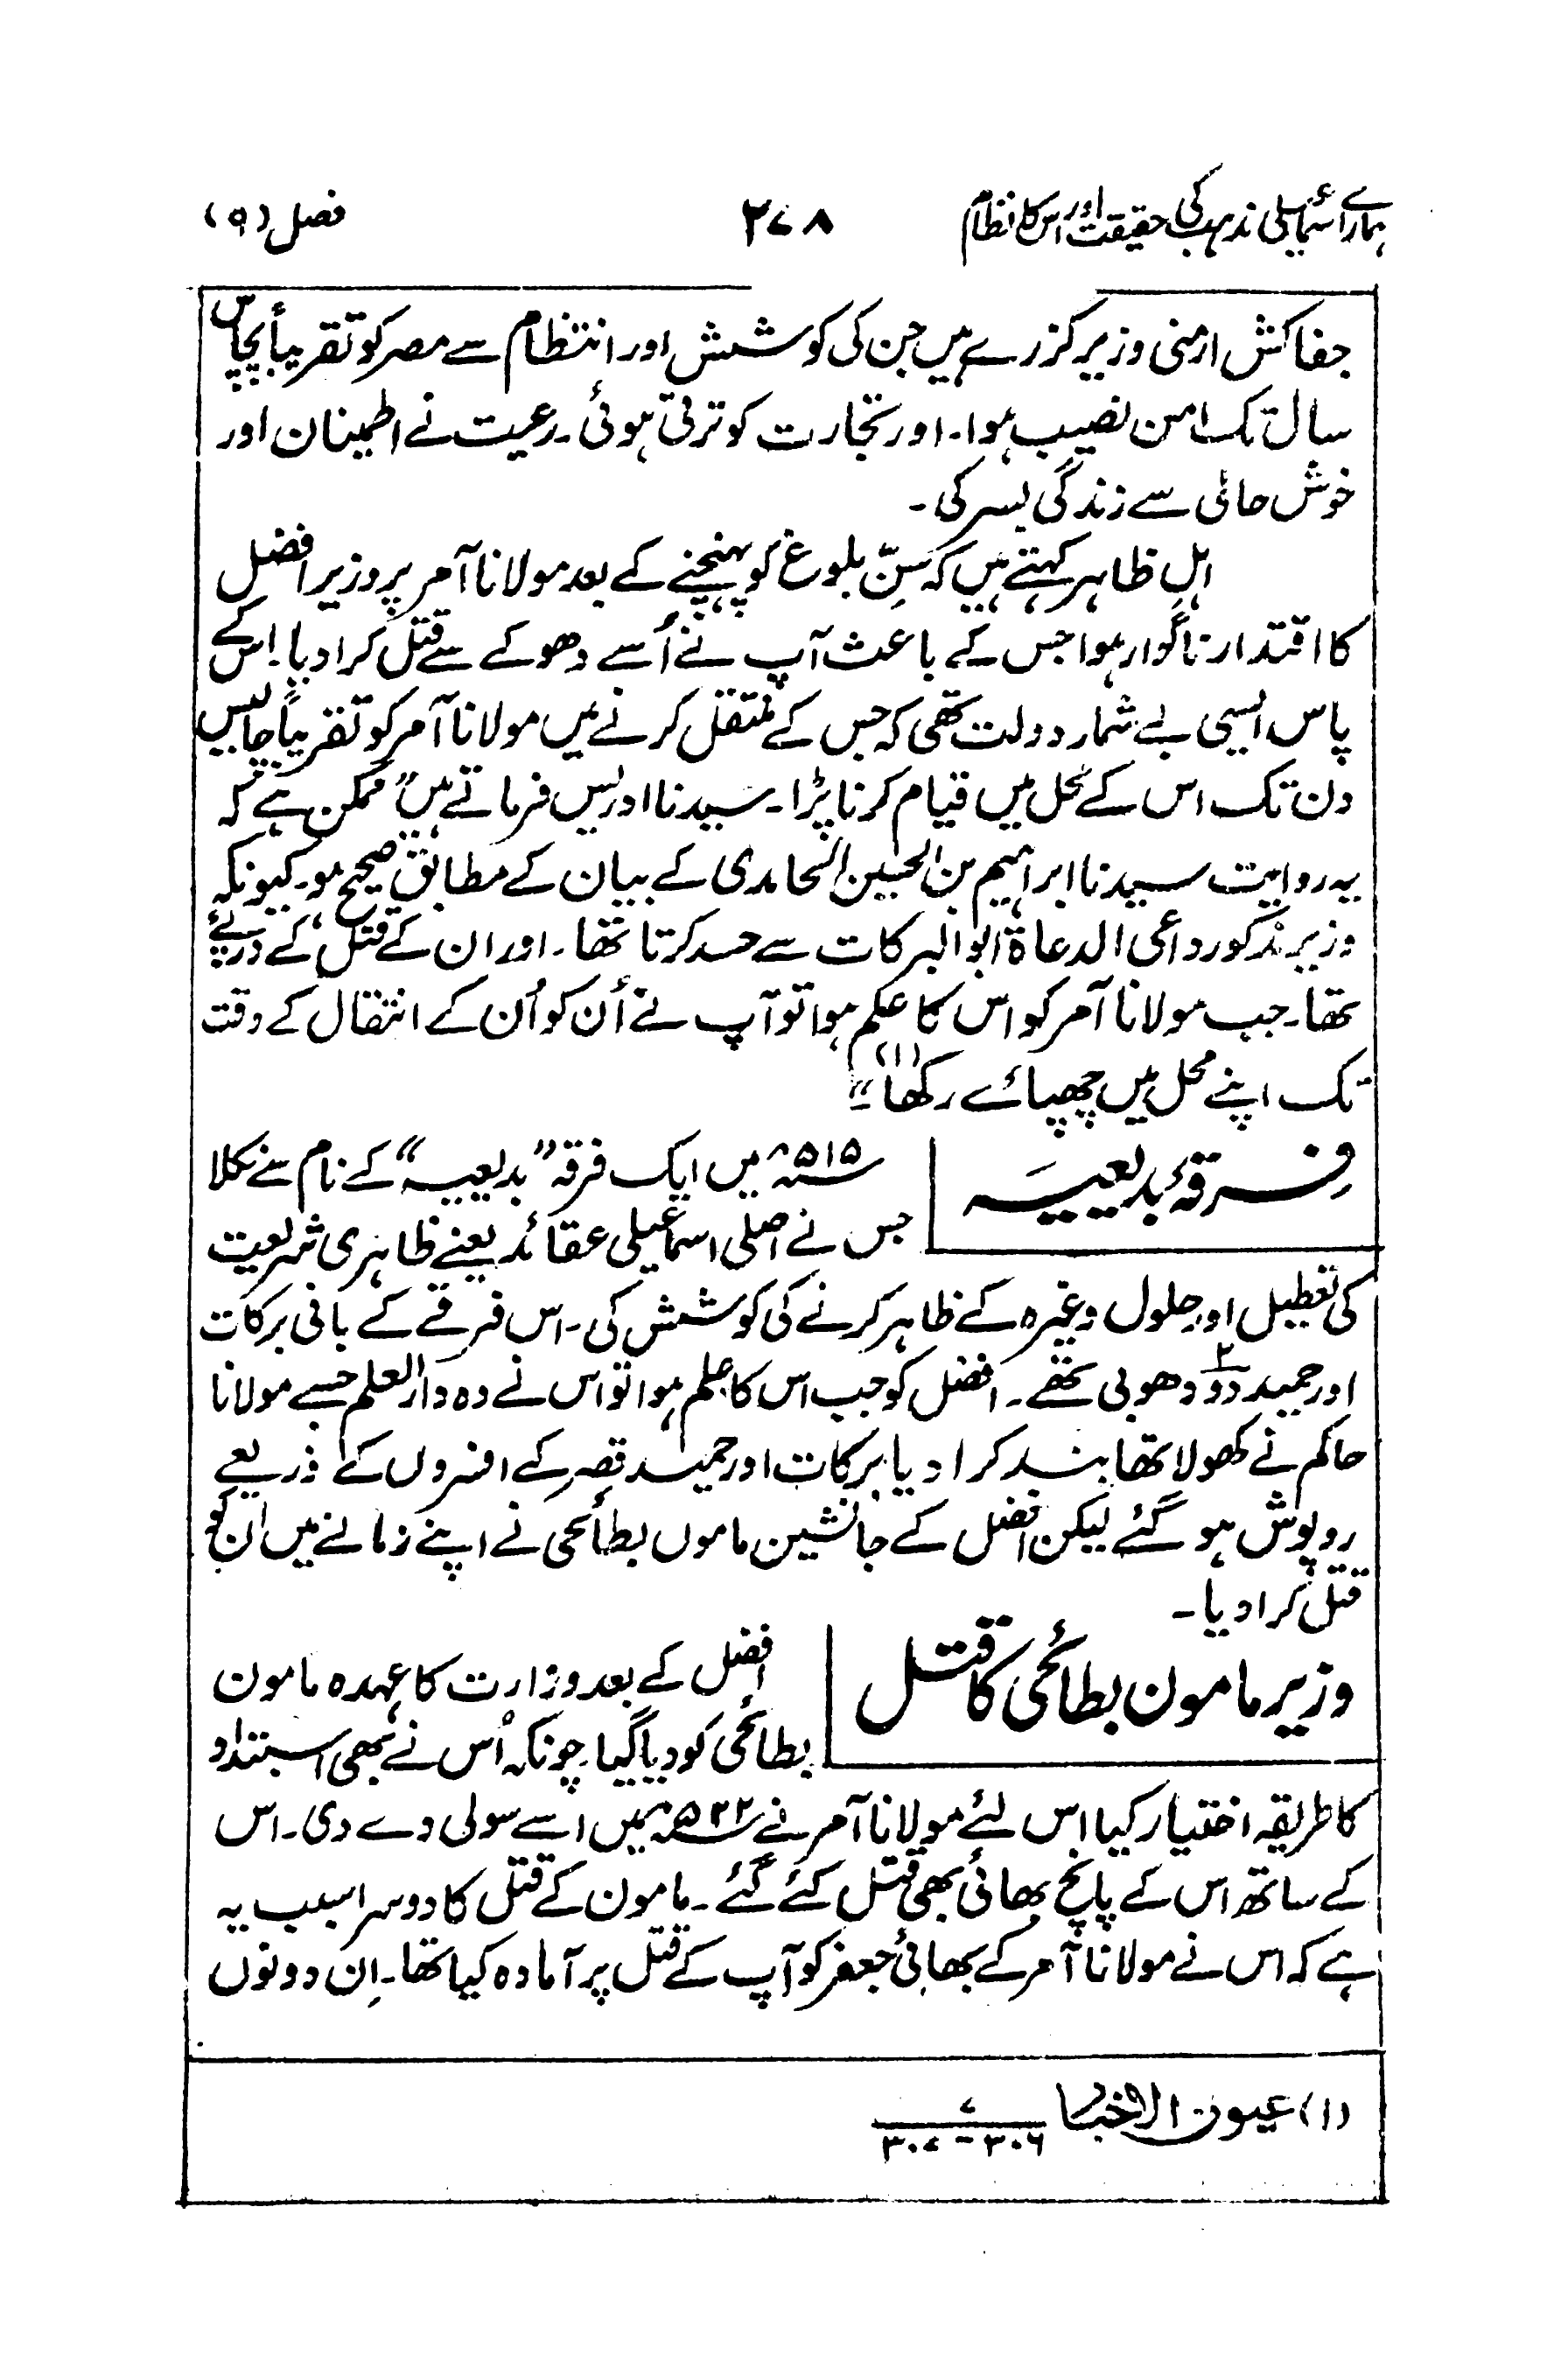 ہمارے اسمٰعیلی مذہب کی حقیقت اور اس کا نظام ۲۷۸ فصل (۹)
جفاکش ارمنی وزیر گزرے ہیں جن کی کوشش اور انتظام سے مصر کو تقریباً پچاس
سال تک امن نصیب ہوا۔ اور تجارت کو ترقی ہوئی۔ رعیت نے اطمینان اور
خوش حالی سے زندگی بسر کی۔
اہلِ ظاہر کہتے ہیں کہ سِنّ بلوغ کو پہنچنے کے بعد مولانا آمر پر وزیر افضل
کا اقتدار ناگوار ہوا جس کے باعث آپ نے اُسے دھوکے سے قتل کرا دیا۔ اس کے
پاس ایسی بے شمار دولت تھی کہ جس کے منتقل کرنے میں مولانا آمر کو تقریباً چالیس
دن تک اس کے محل میں قیام کرنا پڑا۔ سیدنا ادریس فرماتے ہیں "ممکن ہے کہ
یہ روایت سیدنا ابراہیم بن الحسین الحامدی کے بیان کے مطابق صحیح ہو۔ کیونکہ
وزیر مذکور داعی الدعاۃ ابوالبرکات سے حسد کرتا تھا۔ اور ان کے قتل کے درپے
تھا۔ جب مولانا آمر کو اس کا علم ہوا تو آپ نے اُن کو اُن کے انتقال کے وقت
تک اپنے محل میں چھپائے رکھا"۔ (۱)
فرقۂ بدیعیہ
۵۱۵ھ میں ایک فرقہ "بدیعیہ" کے نام سے نکلا
جس نے اصلی اسماعیلی عقائد یعنے ظاہری شریعت
کی تعطیل اور حلول وغیرہ کے ظاہر کرنے کی کوشش کی۔ اس فرقے کے بانی برکات
اور حمید دو ۲ دھوبی تھے۔ افضل کو جب اس کا علم ہوا تو اس نے وہ دارالعلم جسے مولانا
حاکم نے کھولا تھا بند کرا دیا۔ برکات اور حمید قصر کے افسروں کے ذریعے
روپوش ہو گئے لیکن افضل کے جانشین ماموں بطائحی نے اپنے زمانے میں ان کو
قتل کرا دیا۔
وزیر مامون بطائحی کا قتل
افضل کے بعد وزارت کا عہدہ مامون
بطائحی کو دیا گیا۔ چونکہ اُس نے بھی استبداد
کا طریقہ اختیار کیا اس لئے مولانا آمر نے ۵۲۲ھ میں اسے سولی دے دی۔ اس
کے ساتھ اس کے پانچ بھائی بھی قتل کئے گئے۔ مامون کے قتل کا دوسرا سبب یہ
ہے کہ اس نے مولانا آمر کے بھائی جعفر کو آپ کے قتل پر آمادہ کیا تھا۔ اِن دونوں
(۱) عیون الاخبار ۷
۳۰۶ - ۳۰۷